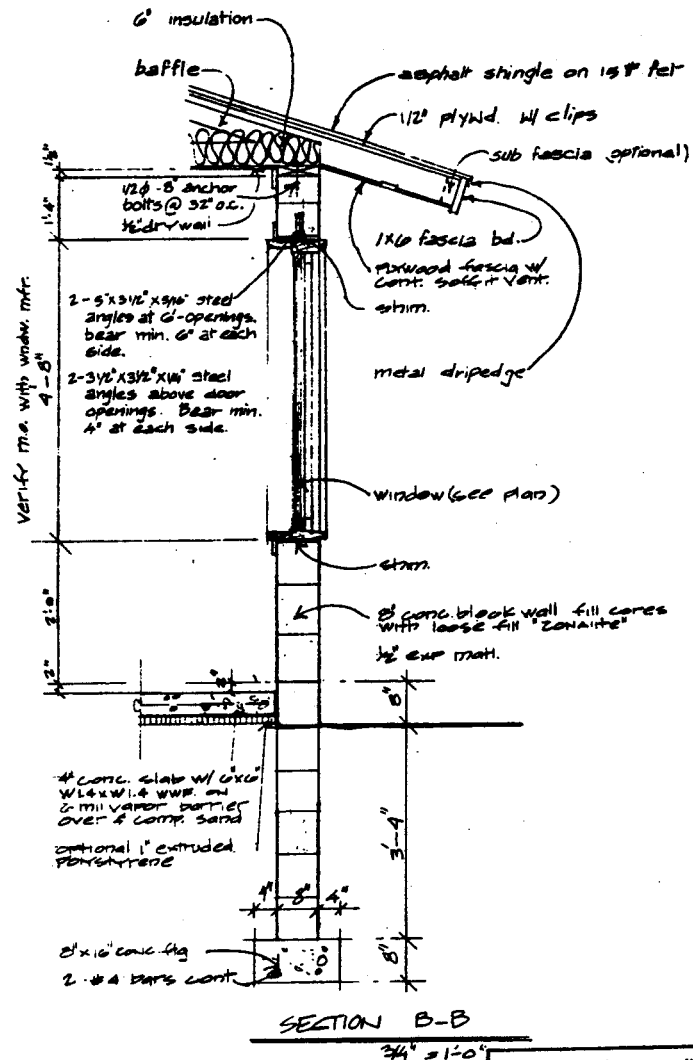 6" insulation
baffle
asphalt shingle on 15# felt
1/2" plywd. w/ clips
sub fascia (optional)
1/2ϕ - 8" anchor
bolts @ 32" o.c.
1/2" drywall
1'-4"
1x6 fascia bd.
plywood fascia w/
cont. soffit vent.
shim.
2 - 5"x3 1/2"x5/16" steel
angles at 6'-openings.
bear min. 6" at each
side.
metal dripedge
2-3 1/2"x3 1/2"x1/4" steel
angles above door
openings. Bear min.
4" at each side.
verify m.o. with wndw. mfr.
4'-8"
window (see plan)
shim.
8" conc. block wall fill cores
with loose fill "zonolite"
1/2" exp matl.
2'-0"
2"
8"
4" conc. slab w/ 6"x6"
W1.4xW1.4 WWF. on
6 mil vapor barrier
over 4" comp. sand
optional 1" extruded
polystyrene
3'-4"
4" 8" 4"
8"x16" conc. ftg
2 - #4 bars cont
8"
SECTION B-B
3/4" = 1'-0"